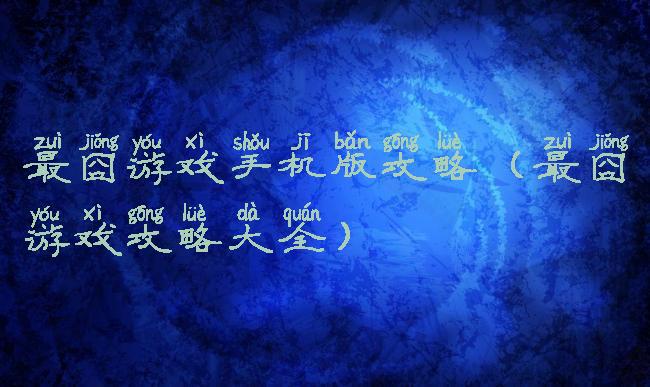 zuì jiǒng yóu xì shǒu jī bǎn gōng lüè zuì jiǒng
最囧游戏手机版攻略（最囧
yóu xì gōng lüè dà quán
游戏攻略大全）